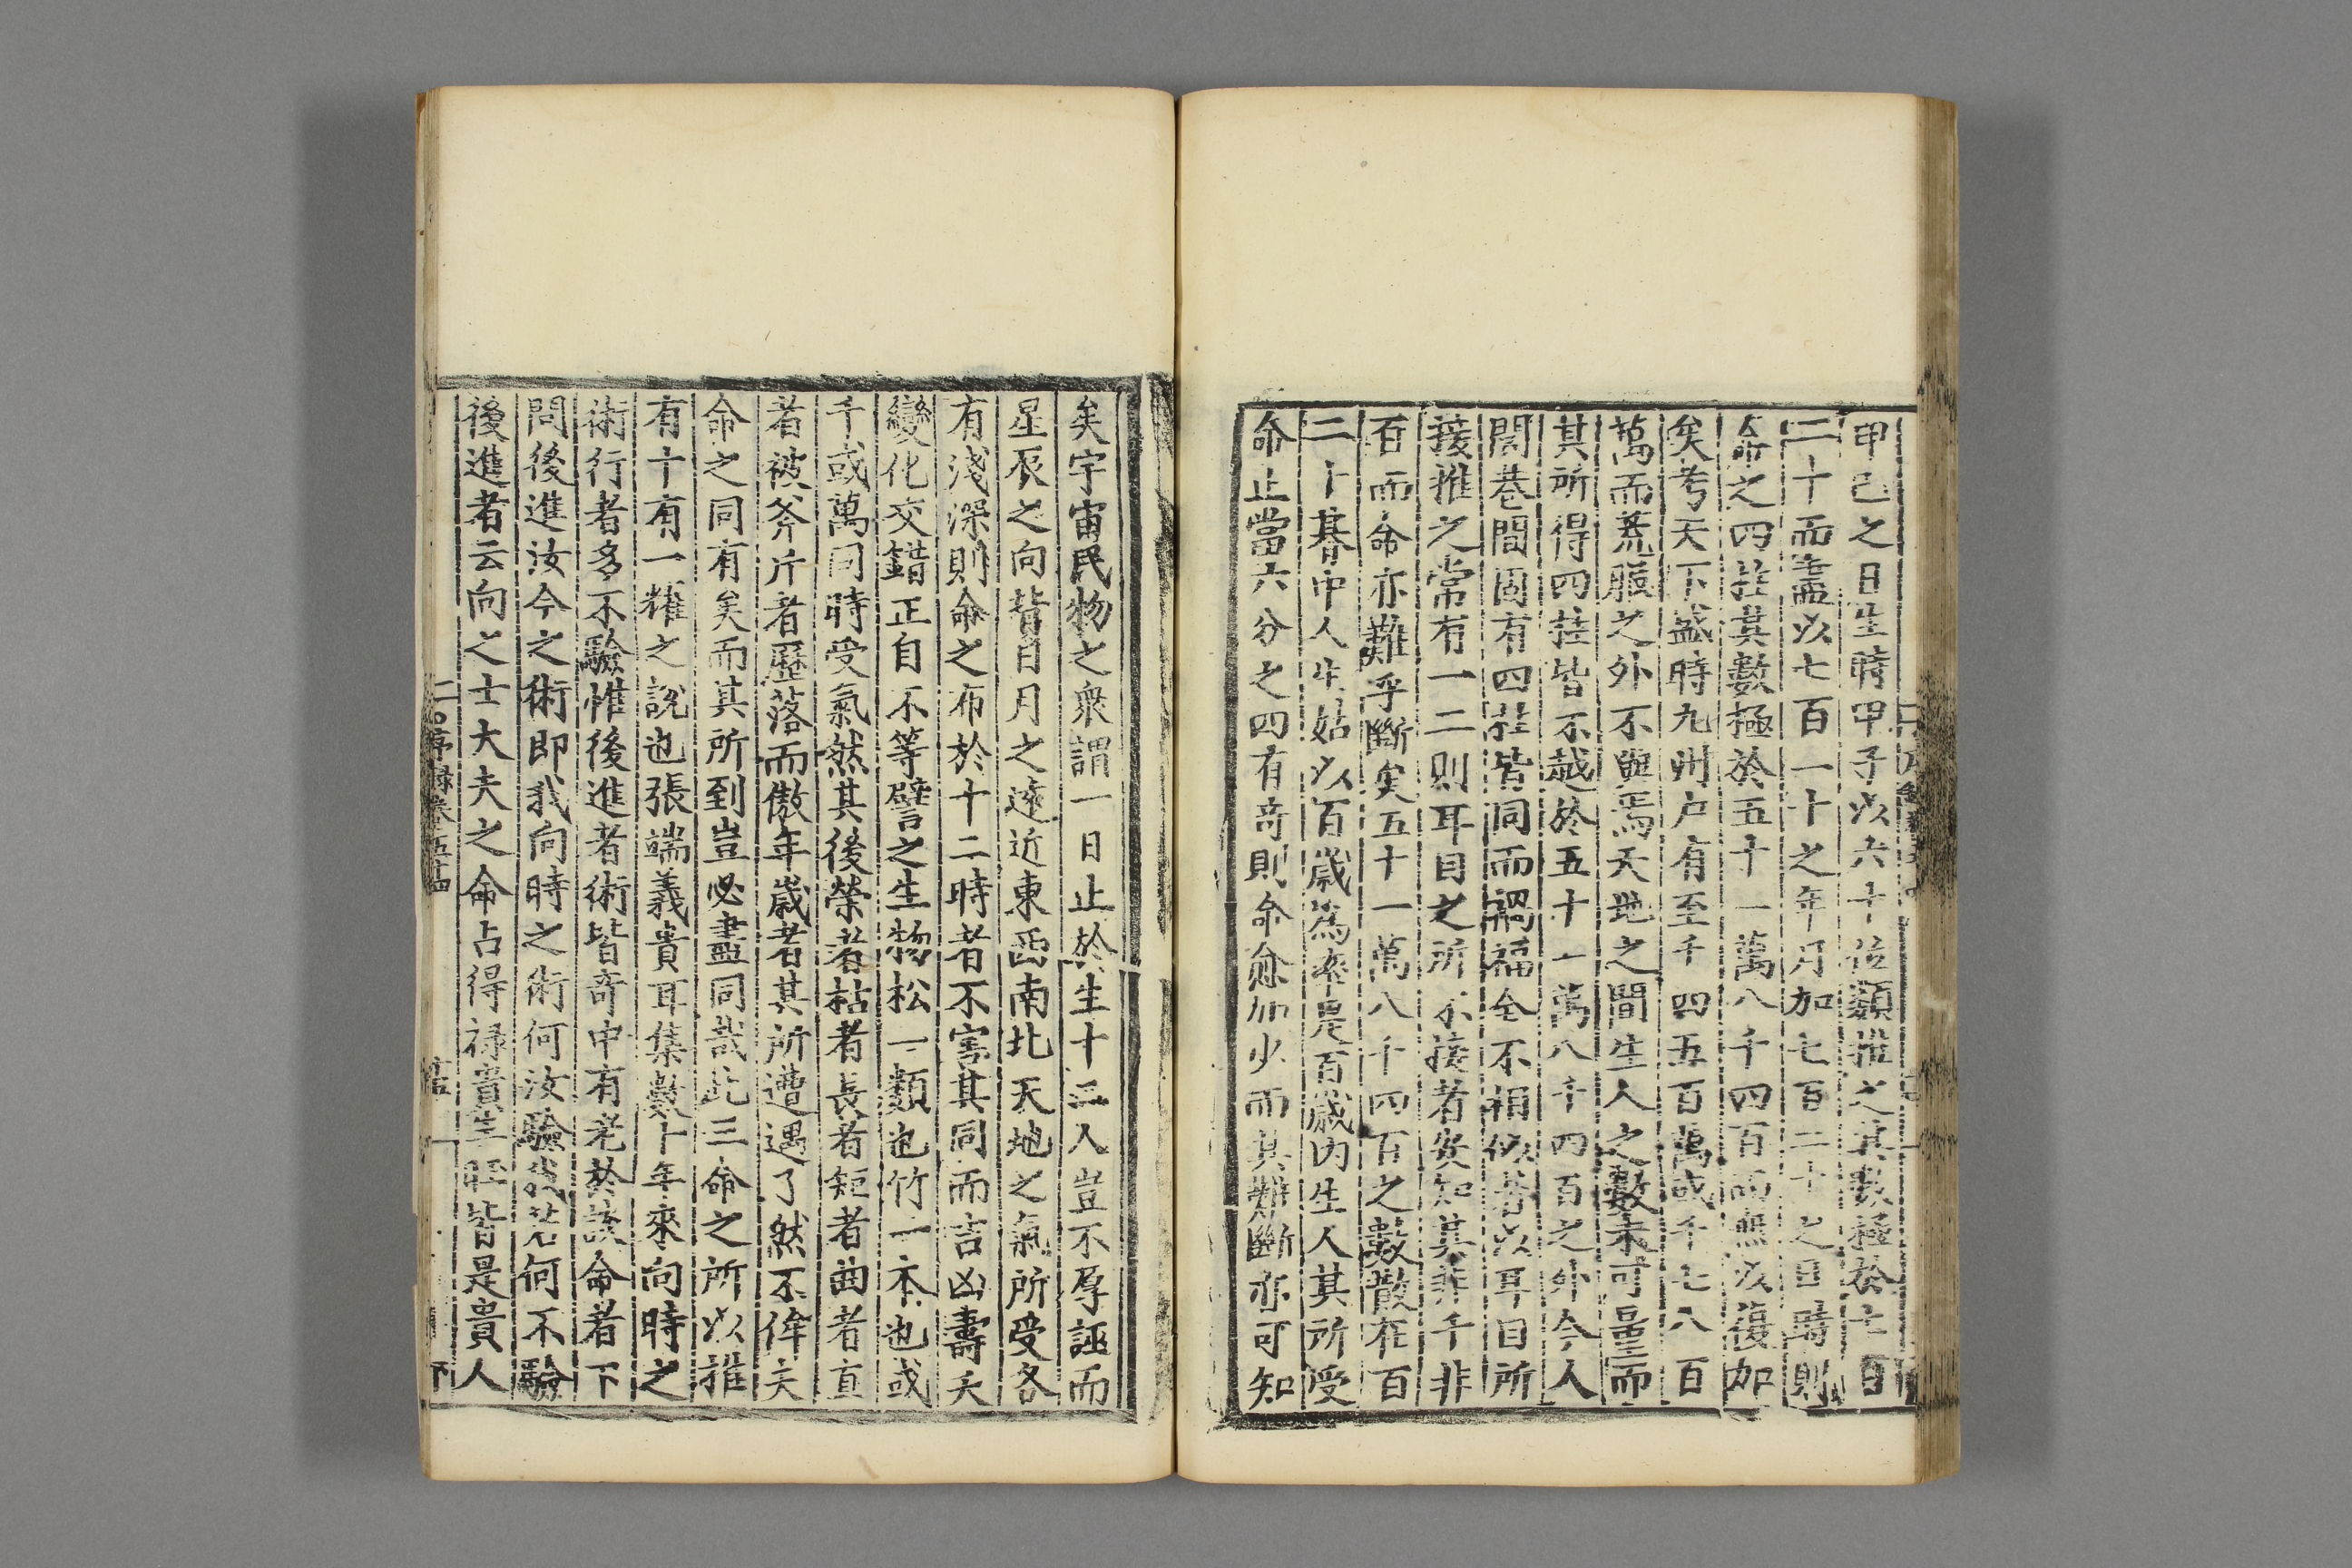 甲己之日生時甲子以六十位類推之其數極於七百
二十而盡以七百一十之年月加七百二十之日時則
命之四柱其數極於五十一萬八千四百而無以復加
矣考天下盛時九州户有至千四五百萬或千七八百
萬而荒服之外不與焉天地之間生人之數未可量而
其所得四柱皆不越於五十一萬八千四百之外今人
閭巷間固有四柱皆同而禍福全不相似者以耳目所
接推之常有一二則耳目之所不接者安知其非千非
百而命亦難乎斷矣五十一萬八千四百之數散在百
二十朞中人生姑以百歲為率是百歲内生人其所受
命止當六分之四有奇則命愈加少而其難斷亦可知
矣宇宙民物之衆謂一日止於生十二人豈不厚誣而
星辰之向背日月之遠近東西南北天地之氣所受各
有淺深則命之布於十二時者不害其同而吉凶壽夭
變化交錯正自不等譬之生物松一類也竹一本也或
千或萬同時受氣然其後榮者枯者長者短者曲者直
者被斧斤者歷落而傲年歲者其所遭遇了然不侔夫
命之同有矣而其所到豈必盡同哉此三命之所以推
有十有一耀之說也張端義貴耳集數十年來向時之
術行者多不驗惟後進者術皆奇中有老於談命者下
問後進汝今之術即我向時之術何汝驗我若何不驗
後進者云向之士大夫之命占得禄貴生旺皆是貴人